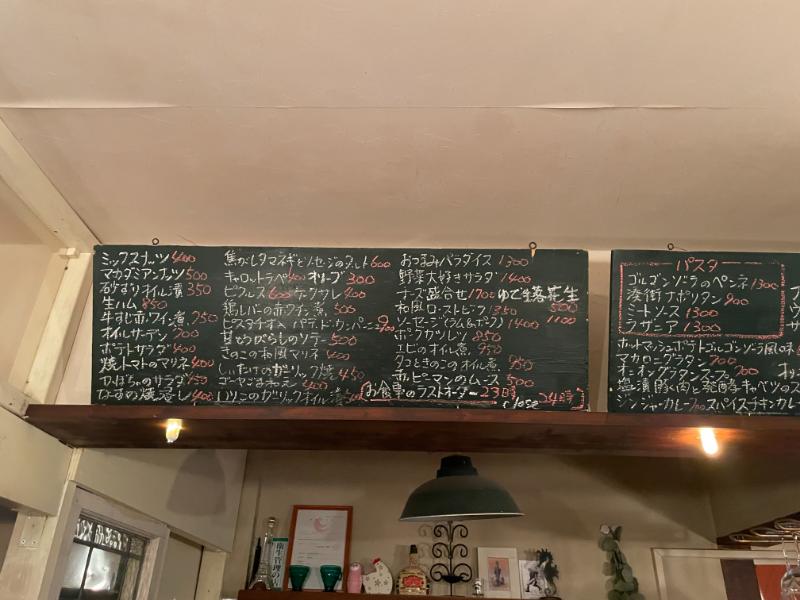 ミックスナッツ 400
マカダミアンナッツ 500
砂ずりオイル漬 350
生ハム 850
牛すじ赤ワイン煮 750
オイルサーデン 700
ポテトサラダ 400
焼トマトのマリネ 400
かぼちゃのサラダ
なすの焼浸し 400
焦がしタマネギとソセージのタルト 600
キャロットラペ 400 オリーブ 300
ピクルス 600
鶏レバーの赤ワイン煮 500
ピスタチオ入パテ・ド・カンパーニュ
のソテー 500
きのこの和風マリネ 400
しいたけのガーリック焼 450
400
いりこのガーリックオイル漬
お食事のラストオーダー 23時
close 24時
おつまみパラダイス 1300
野菜大好きサラダ 1400
盛合せ 1700 ゆで生落花生 500
和風ローストビーフ 1350
ソーセージ(ラム&ポーク) 1400 1100
ポークカツレツ 850
エビのオイル煮 950
タコときのこのオイル煮 950
赤ピーマンのムース 500
パスタ
ゴルゴンゾーラのペンネ 1300
港街ナポリタン 900
ミートソース 1300
ラザニア 1300
ホットマッシュポテトゴルゴンゾーラ風
マカロニグラタン 700
オニオングラタンスープ 700
塩漬豚肉と発酵キャベツの
ジンジャーカレー 700 スパイスチキンカレー